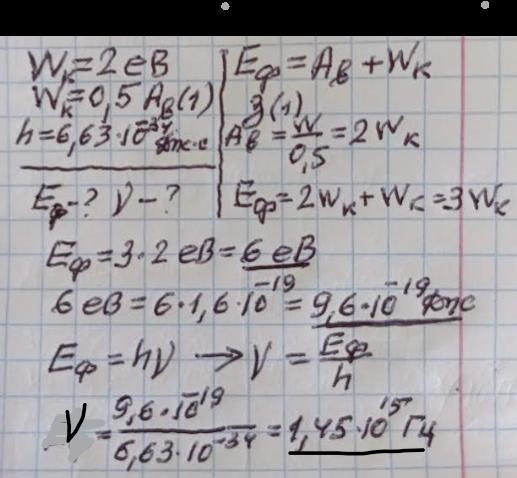 Wк = 2 еВ
Wк = 0,5 Aв (1)
h = 6,63·10⁻³⁴ Дж·с
Eф - ? ν - ?
Eф = Aв + Wк
З (1)
Aв = W/0,5 = 2Wк
Eф = 2Wк + Wк = 3Wк
Eф = 3·2 еВ = 6 еВ
6 еВ = 6·1,6·10⁻¹⁹ = 9,6·10⁻¹⁹ Дж
Eф = hν → ν = Eф/h
ν = 9,6·10⁻¹⁹/6,63·10⁻³⁴ = 1,45·10¹⁵ Гц